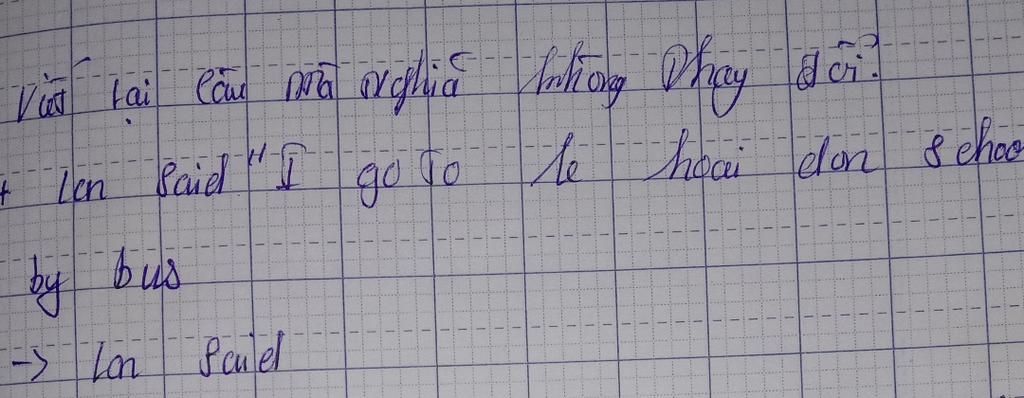 Viết lại câu mà nghĩa không thay đổi?
+ Lan said "I go to le hoai don schoo
by bus
-> Lan said